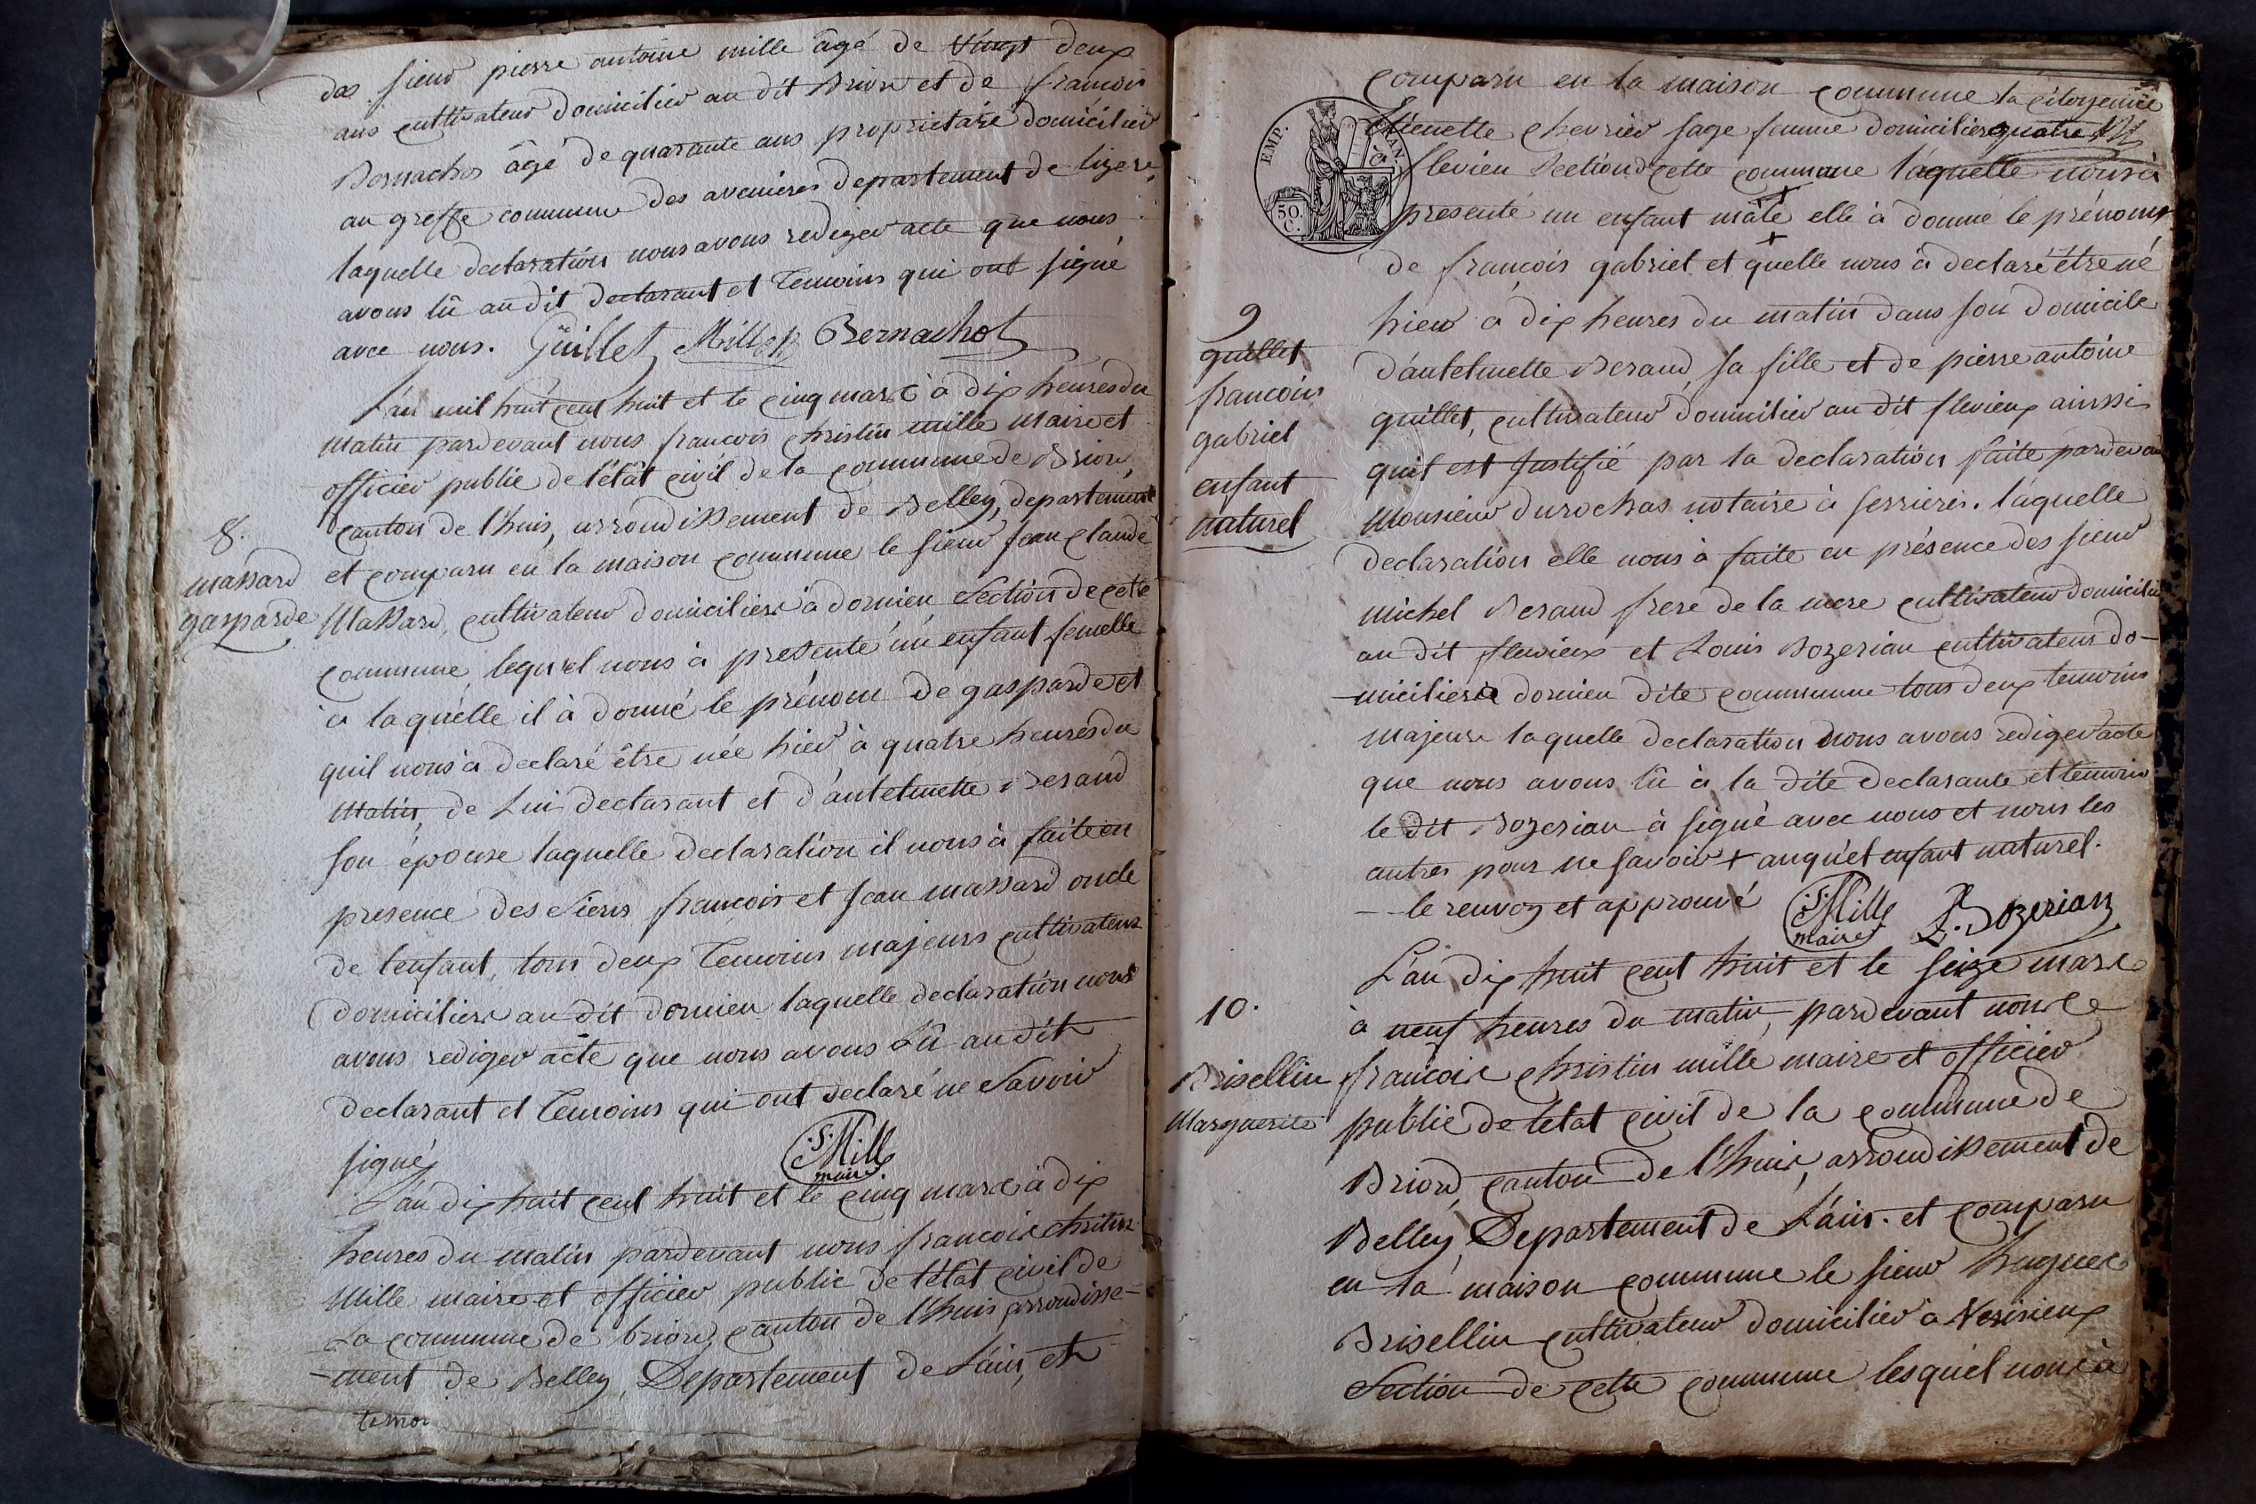 des sieur pierre antoine mille âgé de vingt deux
ans cultivateur domicilier au dit Brion et de francois
Bernachot âgé de quarante ans proprietaire domicilier
au greffe commune des avenieres departement de lizere,
laquelle declaration nous avons rediger acte que nous
avons lû au dit declarant et temoins qui ont signé
avec nous. Guillet Mille Bernachot
8.
massard
gasparde
L'an mil huit cent huit et le cinq mars à dix heures du
matin pardevant nous francois christin mille maire et
officier public de l'étât civil de la commune de Brion,
canton de lhuis, arrondissement de Belley, departement
et comparu en la maison commune le sieur jean claude
Massard, cultivateur domiciliers à dornieu Section de cette
commune, lequel nous à presenté un enfant femelle
à laquelle il à donné le prénom de gasparde et
quil nous à declaré être née hier à quatre heures du
matin, de Lui declarant et d'antelmette Beraud
son épouse laquelle declaration il nous à faite en
presence des Sieurs francois et jean massard oncle
de lenfant, tous deux temoins majeurs cultivateurs
domiciliers au dit dornieu laquelle declaration nous
avons rediger acte que nous avons Lû au dit
declarant et temoins qui ont declaré ne Savoir
signé,
f. Mille
maire
L'an dix huit cent huit et le cinq mars à dix
heures du matin pardevant nous francois christin
Mille maire et officier public de létât civil de
La commune de brion, canton de lhuis, arrondisse-
-ment de Belley, Departement de L'ain, et
temoi
EMP. FRAN.
50.
C.
comparu en la maison commune la citoyenne
Etienette chevrier sage femme domiciliers quatre
flevieu Section cette commune laquelle nous à
presenté un enfant mâle + elle à donne le prénoms
de francois gabriel et + quelle nous à declaré être né
hier à dix heures du matin dans son domicile
9
guillet
francois
gabriel
enfant
naturel
d'antelmette Beraud, sa fille et de pierre antoine
guillet, cultivateur domicilier au dit flevieux ainssi
quil est justifié par la declaration faite pardevan
Monsieur durochas notaire à serrieres. laquelle
declaration elle nous à faite en présence des sieur
michel Beraud frere de la mere cultivateur domicilie
au dit flevieux et Louis Bozerian cultivateur do-
-miciliers à dornieu dite commune tous deux temoins
Majeurs laquelle declaration nous avons rediger acte
que nous avons lû à la dite declarante et temoins
le dit Bozerian à signé avec nous et nous les
autres pour ne savoir + auquel enfant naturel.
- le renvoy et approuvé f. Mille
maire L. Bozerian
10.
Brisellin
Marguerite
L'an dix huit cent huit et le seize mars
à neuf heures du matin, pardevant nous
francois christin mille maire et officier
public de létat civil de la commune de
Briord, canton de l'huis, arrondissement de
Belley, Departement de L'ain. et comparu
en la maison commune le sieur hugues
Brisellin cultivateur domicilier à Verisieux
Section de cette commune lesquel nous à